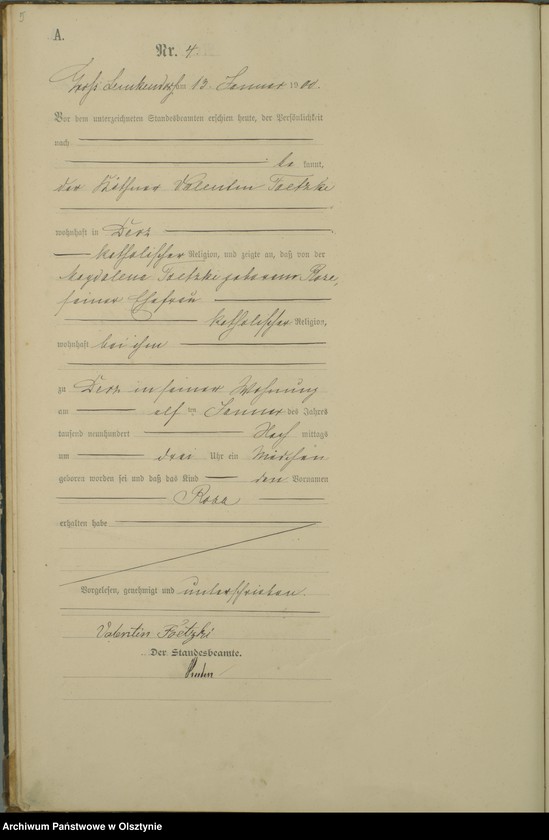 5
A.
Nr. 4.
Groß Lemkendorf am 13. Januar 1900.
Vor dem unterzeichneten Standesbeamten erschien heute, der Persönlichkeit
nach
be kannt,
der Käthner Valentin
wohnhaft in Derz
katholischer Religion, und zeigte an, daß von der
Magdalena geborenen
seiner Ehefrau
katholischer Religion,
wohnhaft bei ihm
zu Derz in seiner Wohnung
am elf ten Januar des Jahres
tausend neunhundert Nach mittags
um drei Uhr ein Mädchen
geboren worden sei und daß das Kind den Vornamen
Rosa
erhalten habe
Vorgelesen, genehmigt und unterschrieben.
Valentin
Der Standesbeamte.
Archiwum Państwowe w Olsztynie